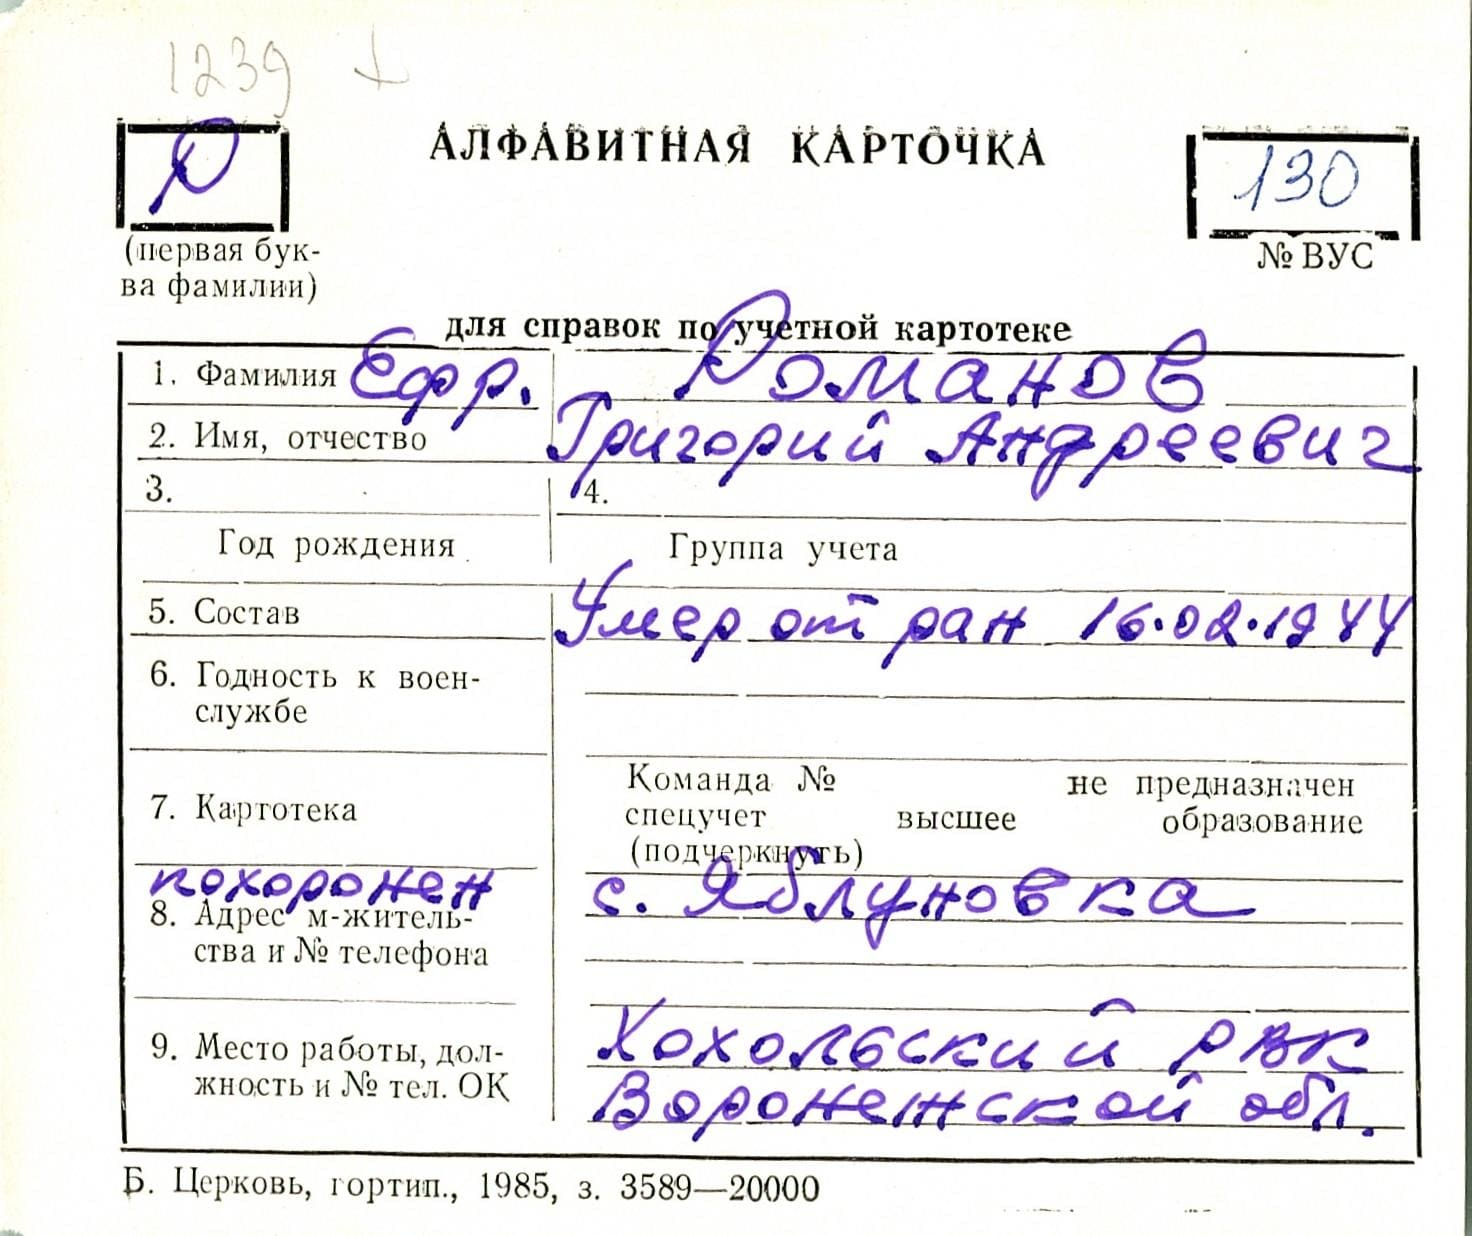 1239
Р
АЛФАВИТНАЯ КАРТОЧКА
130
(первая бук-
ва фамилии)
№ ВУС
для справок по учетной картотеке
1. Фамилия Ефр. Романов
2. Имя, отчество Григорий Андреевич
3. 4.
Год рождения Группа учета
5. Состав Умер от ран 16.02.1944
6. Годность к воен-
службе
Команда № не предназначен
7. Картотека спецучет высшее образование
(подчеркнуть)
похоронен с. Яблуновка
8. Адрес м-житель-
ства и № телефона
Хохольский рвк
9. Место работы, дол-
жность и № тел. ОК
Воронежской обл.
Б. Церковь, гортип., 1985, з. 3589—20000